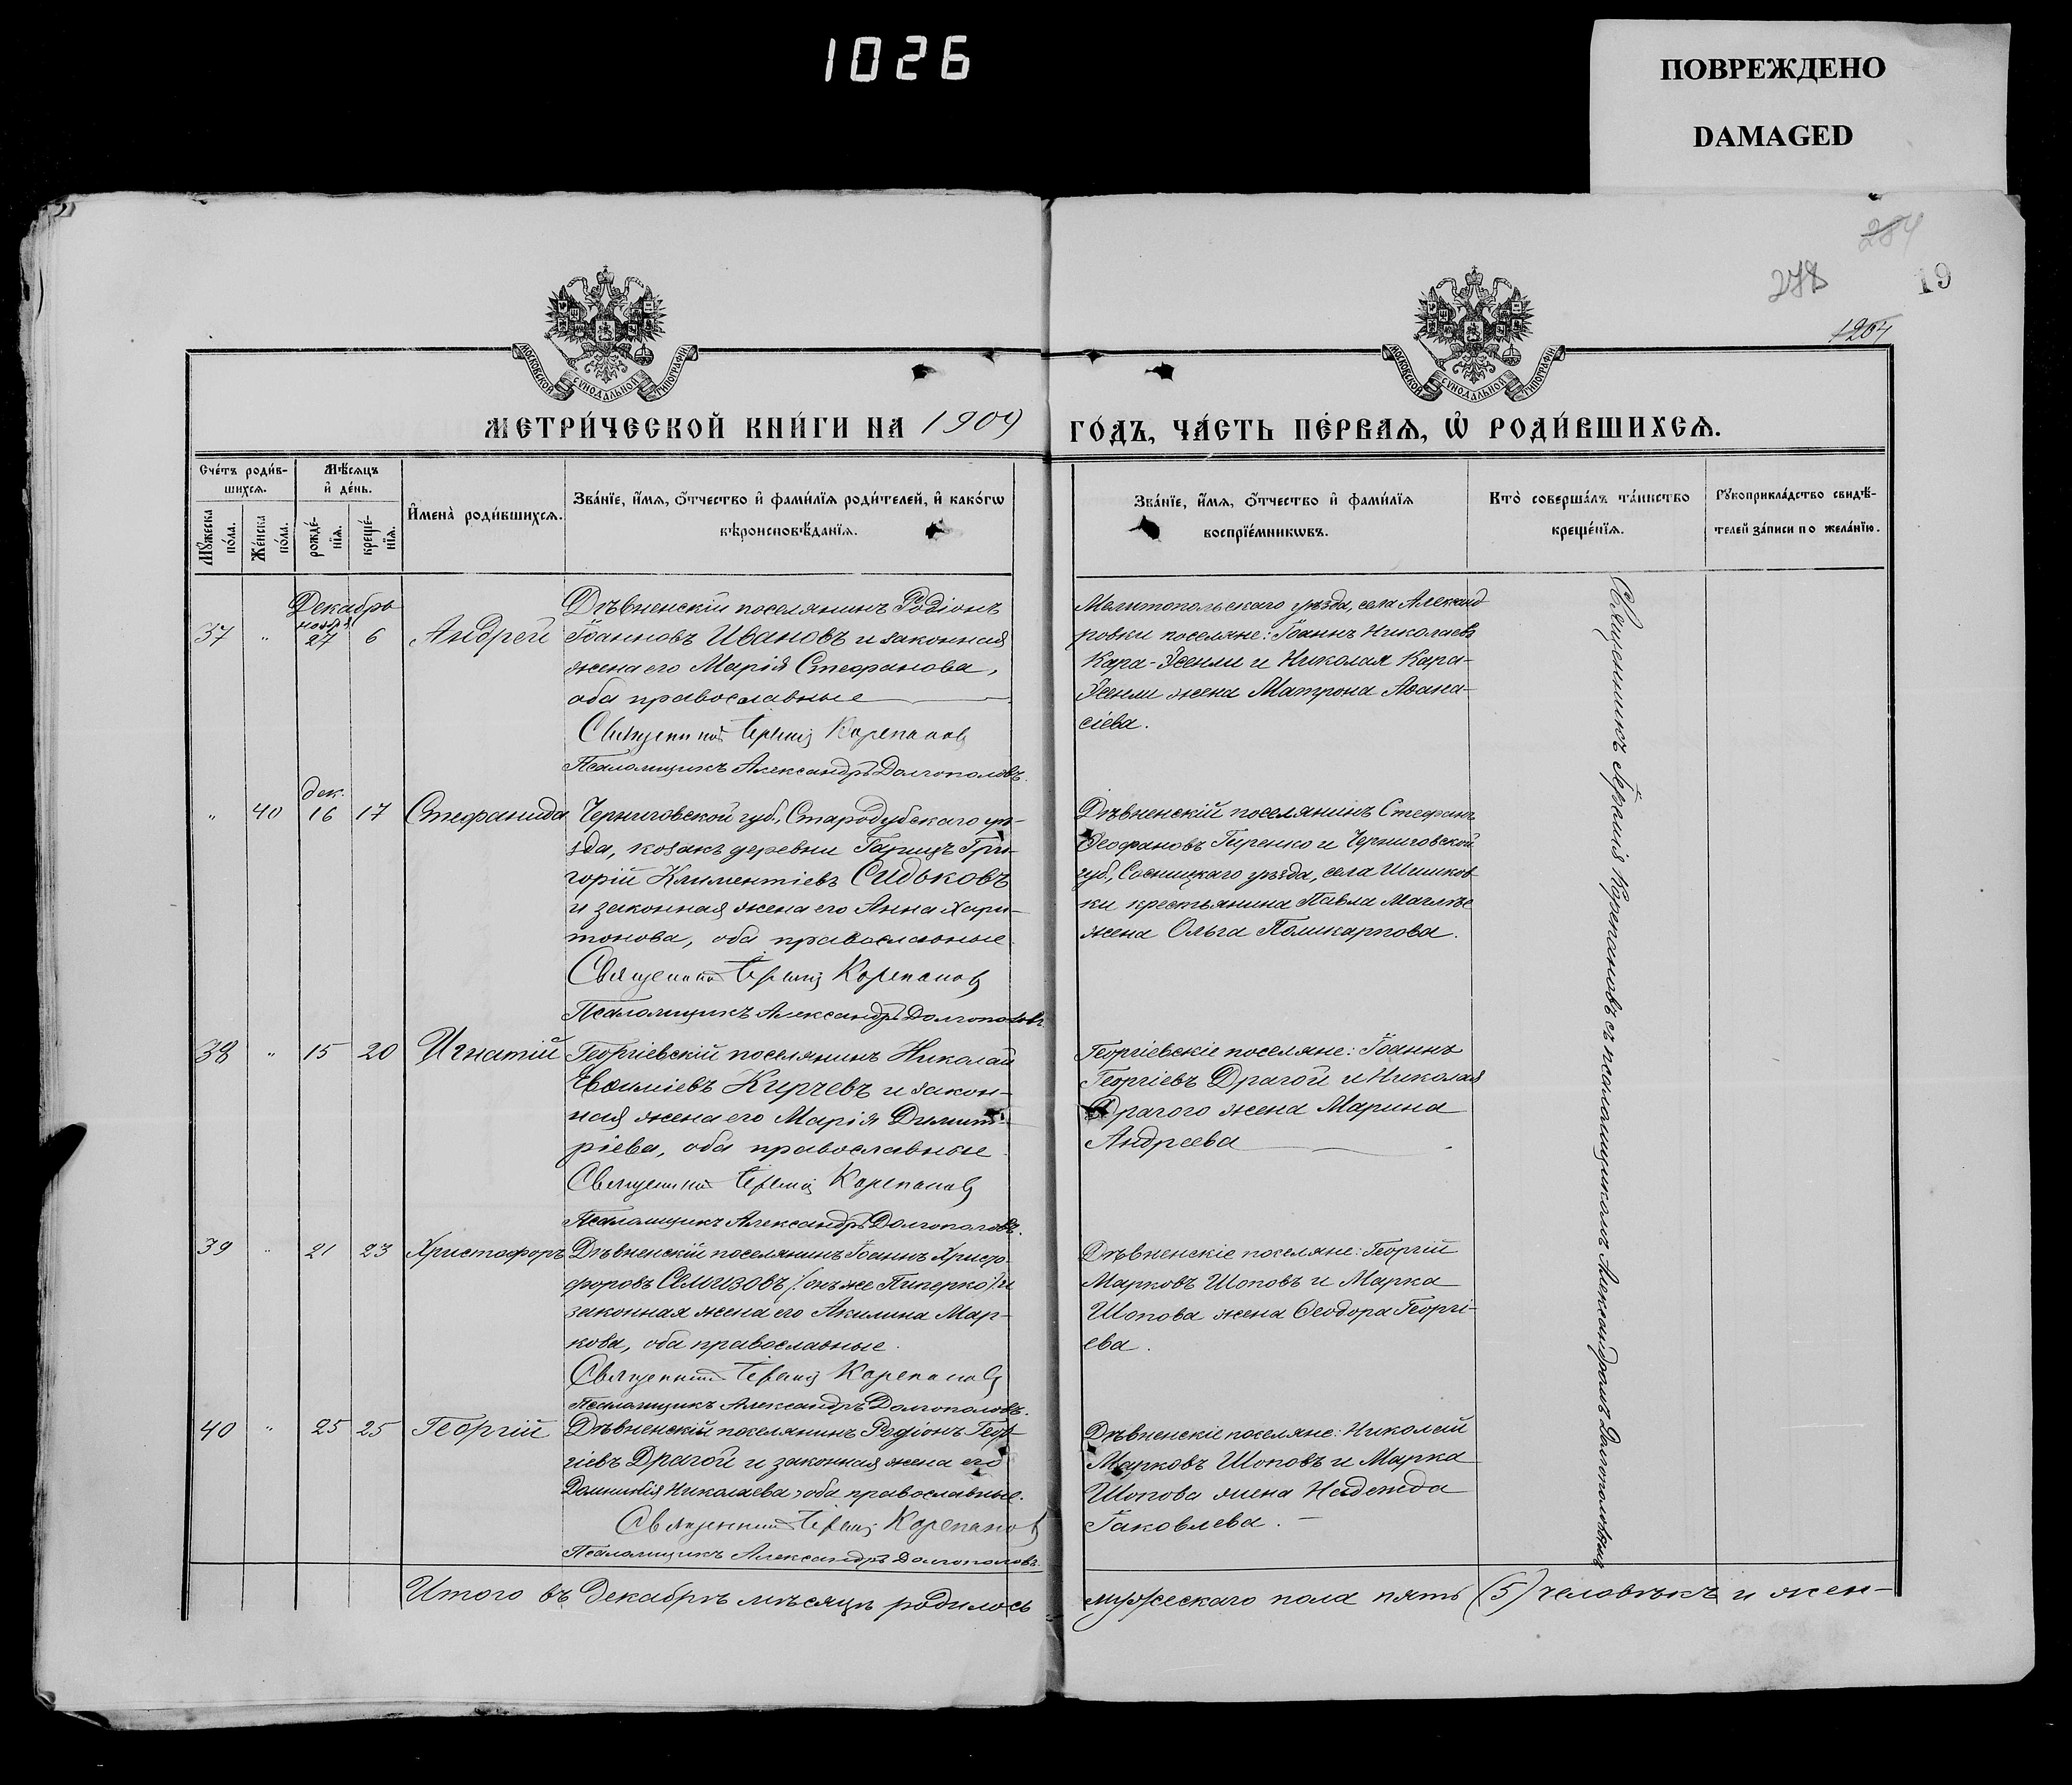 1026
ПОВРЕЖДЕНО
DAMAGED
284
278
19
1204
МОСКОВСКОЙ СѴНОДАЛЬНОЙ ТИПОГРАФІИ
МОСКОВСКОЙ СѴНОДАЛЬНОЙ ТИПОГРАФІИ
МЕТРИ́ЧЕСКОЙ КНИ́ГИ НА 1909
ГО́ДЪ, ЧА́СТЬ ПЕ́РВАѦ, Ѡ҆ РОДИ́ВШИХСѦ.
Сче́тъ роди́в-
шихсѧ.
Мꙋ́жеска по́ла.
Же́нска по́ла.
Мѣ́сѧцъ
и҆ де́нь.
рожде́-
нїѧ.
креще́-
нїѧ.
И҆мена̀ роди́вшихсѧ.
Зва́нїе, и҆́мѧ, ѻ҆́тчество и҆ фами́лїѧ роди́телей, и҆ како́гѡ
вѣроисповѣ́данїѧ.
Зва́нїе, и҆́мѧ, ѻ҆́тчество и҆ фами́лїѧ
воспрїе́мникѡвъ.
Кто̀ соверша́лъ та́инство
креще́нїѧ.
Рꙋкоприкла́дство свидѣ́-
телей за́писи по жела́нїю.
Декабрь
37 " ноября 27 6 Андрей
Дѣвненскій поселянинъ Родіонъ
Іоанновъ Ивановъ и законная
жена его Марія Стефанова,
оба православные
Священникъ Іеремія Корепановъ
Псаломщикъ Александръ Долгополовъ.
Мелитопольскаго уѣзда, села Александ
ровки поселяне: Іоаннъ Николаевъ
Кара-Эсенли и Николая Кара-
Эсенли жена Матрона Аѳана-
сіева.
" 40 дек. 16 17 Стефанида
Черниговской губ., Стародубскаго уѣ-
зда, козакъ деревни Гарицъ Гри-
горій Климентіевъ Сидьковъ
и законная жена его Анна Хари-
тонова, оба православные.
Священникъ Іеремія Корепановъ
Псаломщикъ Александръ Долгополовъ
Дѣвненскій поселянинъ Стефанъ
Ѳеофановъ Гиренко и Черниговской
губ., Сосницкаго уѣзда, села Шишков
ки крестьянина Павла
жена Ольга Поликарпова.
38 " 15 20 Игнатій
Георгіевскій поселянинъ Николай
Евѳиміевъ Кирчевъ и закон-
ная жена его Марія Димит-
ріева, оба православные
Священникъ Іеремія Корепановъ
Псаломщикъ Александръ Долгополовъ.
Георгіевскіе поселяне: Іоаннъ
Георгіевъ Драгой и Николая
Драгого жена Марина
Андреева
39 " 21 23 Христофоръ
Дѣвненскій поселянинъ Іоаннъ Христо
форовъ Семизовъ /:онъ же Пиперко:/ и
законная жена его Акилина Мар-
кова, оба православные.
Священникъ Іеремія Корепановъ
Псаломщикъ Александръ Долгополовъ.
Дѣвненскіе поселяне: Георгій
Марковъ Шоповъ и Марка
Шопова жена Ѳеодора Георгі-
ева.
40 " 25 25 Георгій
Дѣвненскій поселянинъ Родіонъ Геор-
гіевъ Драгой и законная жена его
Домникія Николаева, оба православные.
Священникъ Іеремія Корепановъ
Псаломщикъ Александръ Долгополовъ.
Дѣвненскіе поселяне: Николай
Марковъ Шоповъ и Марка
Шопова жена Надежда
Іаковлева.
Священникъ Іеремія Корепановъ съ псаломщикомъ Александромъ Долгополовымъ
Итого въ Декабрѣ мѣсяцѣ родилось мужескаго пола пять (5) человѣкъ и жен-